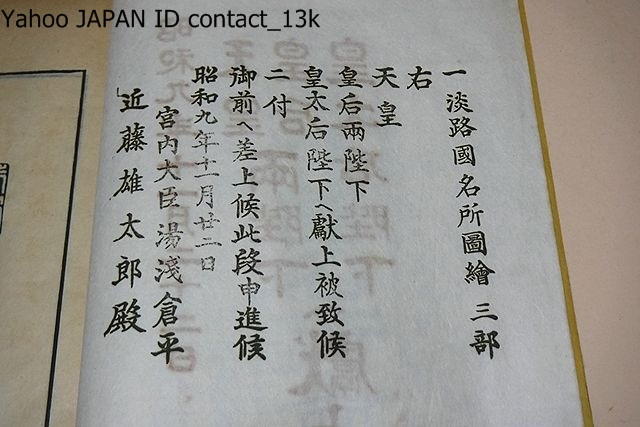 Yahoo JAPAN ID contact_13k
一淡路國名所圖繪 三部
右
天皇
皇后兩陛下
皇太后陛下ヘ獻上被致候
ニ付
御前ヘ差上候此段申進候
昭和九年十一月廿二日
宮内大臣 湯淺倉平
近藤雄太郎殿